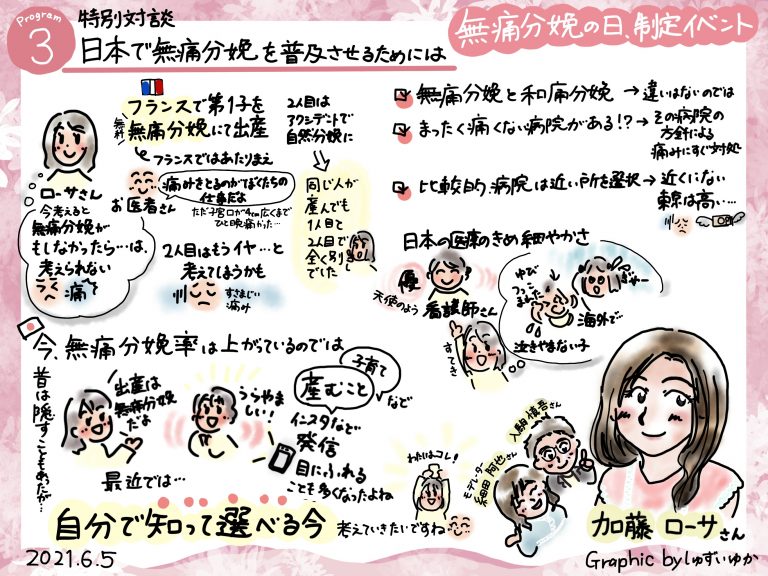 Program
3
特別対談
日本で無痛分娩を普及させるためには
無痛分娩の日、制定イベント
フランスで第1子を
無痛分娩にて出産
無料
フランスではあたりまえ
2人目は
アクシデントで
自然分娩に
ローサさん
お医者さん
痛みをとるのがぼくたちの
仕事だよ
ただ子宮口が4cm広くまで
ひと晩痛かった…
今考えると
無痛分娩が
もしなかったら…は、
考えられない
痛
2人目はもうイヤ…と
考えてしまうかも
すさまじい
痛み
同じ人が
産んでも
1人目と
2人目で
全く別
でした
無痛分娩と和痛分娩 → 違いはないのでは
まったく痛くない病院がある!? → その病院の
方針による
痛みにすぐ対処
比較的、病院は近い所を選択 → 近くにない
東京は高い…
日本の医療のきめ細やかさ
優
天使のよう
看護師さん
すてき
ゆび
つっこ
まれた
ぎゃー
海外で
泣きやまない子
今、無痛分娩率は上がっているのでは
昔は隠すこともあったが…
出産は
無痛分娩
だよ
うらやま
しい!
最近では…
子育て
産むこと
など
インスタなどで
発信
目にふれる
ことも多くなったよね
わたしはコレ!
自分で知って選べる今
考えていきたいですね
入駒慎吾さん
モデレーター
加藤 ローサさん
2021.6.5
Graphic by しゅずいゆか